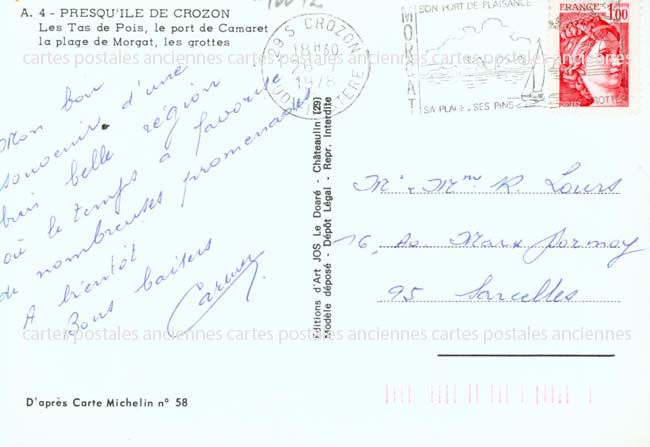 A. 4 - PRESQU'ILE DE CROZON
Les Tas de Pois, le port de Camaret
la plage de Morgat, les grottes
29 S CROZON
18H30
1978
FINISTERE
MORGAT
SON PORT DE PLAISANCE
SA PLAGE - SES PINS
GROTTES
FRANCE
1,00
POSTES
cartes postales anciennes cartes postales anciennes cartes postales anciennes
Mon bon
souvenir d'une
belle région
où le temps a favorisé
de nombreuses promenades
A bientôt
Bons baisers
Carmen
Editions d'Art JOS Le Doaré - Châteaulin (29)
Modèle déposé - Dépôt Légal - Repr. Interdite
Mr & Mme R. Lours
16, Av. Marx Dormoy
95 Sarcelles
cartes postales anciennes cartes postales anciennes cartes postales anciennes
D'après Carte Michelin nº 58